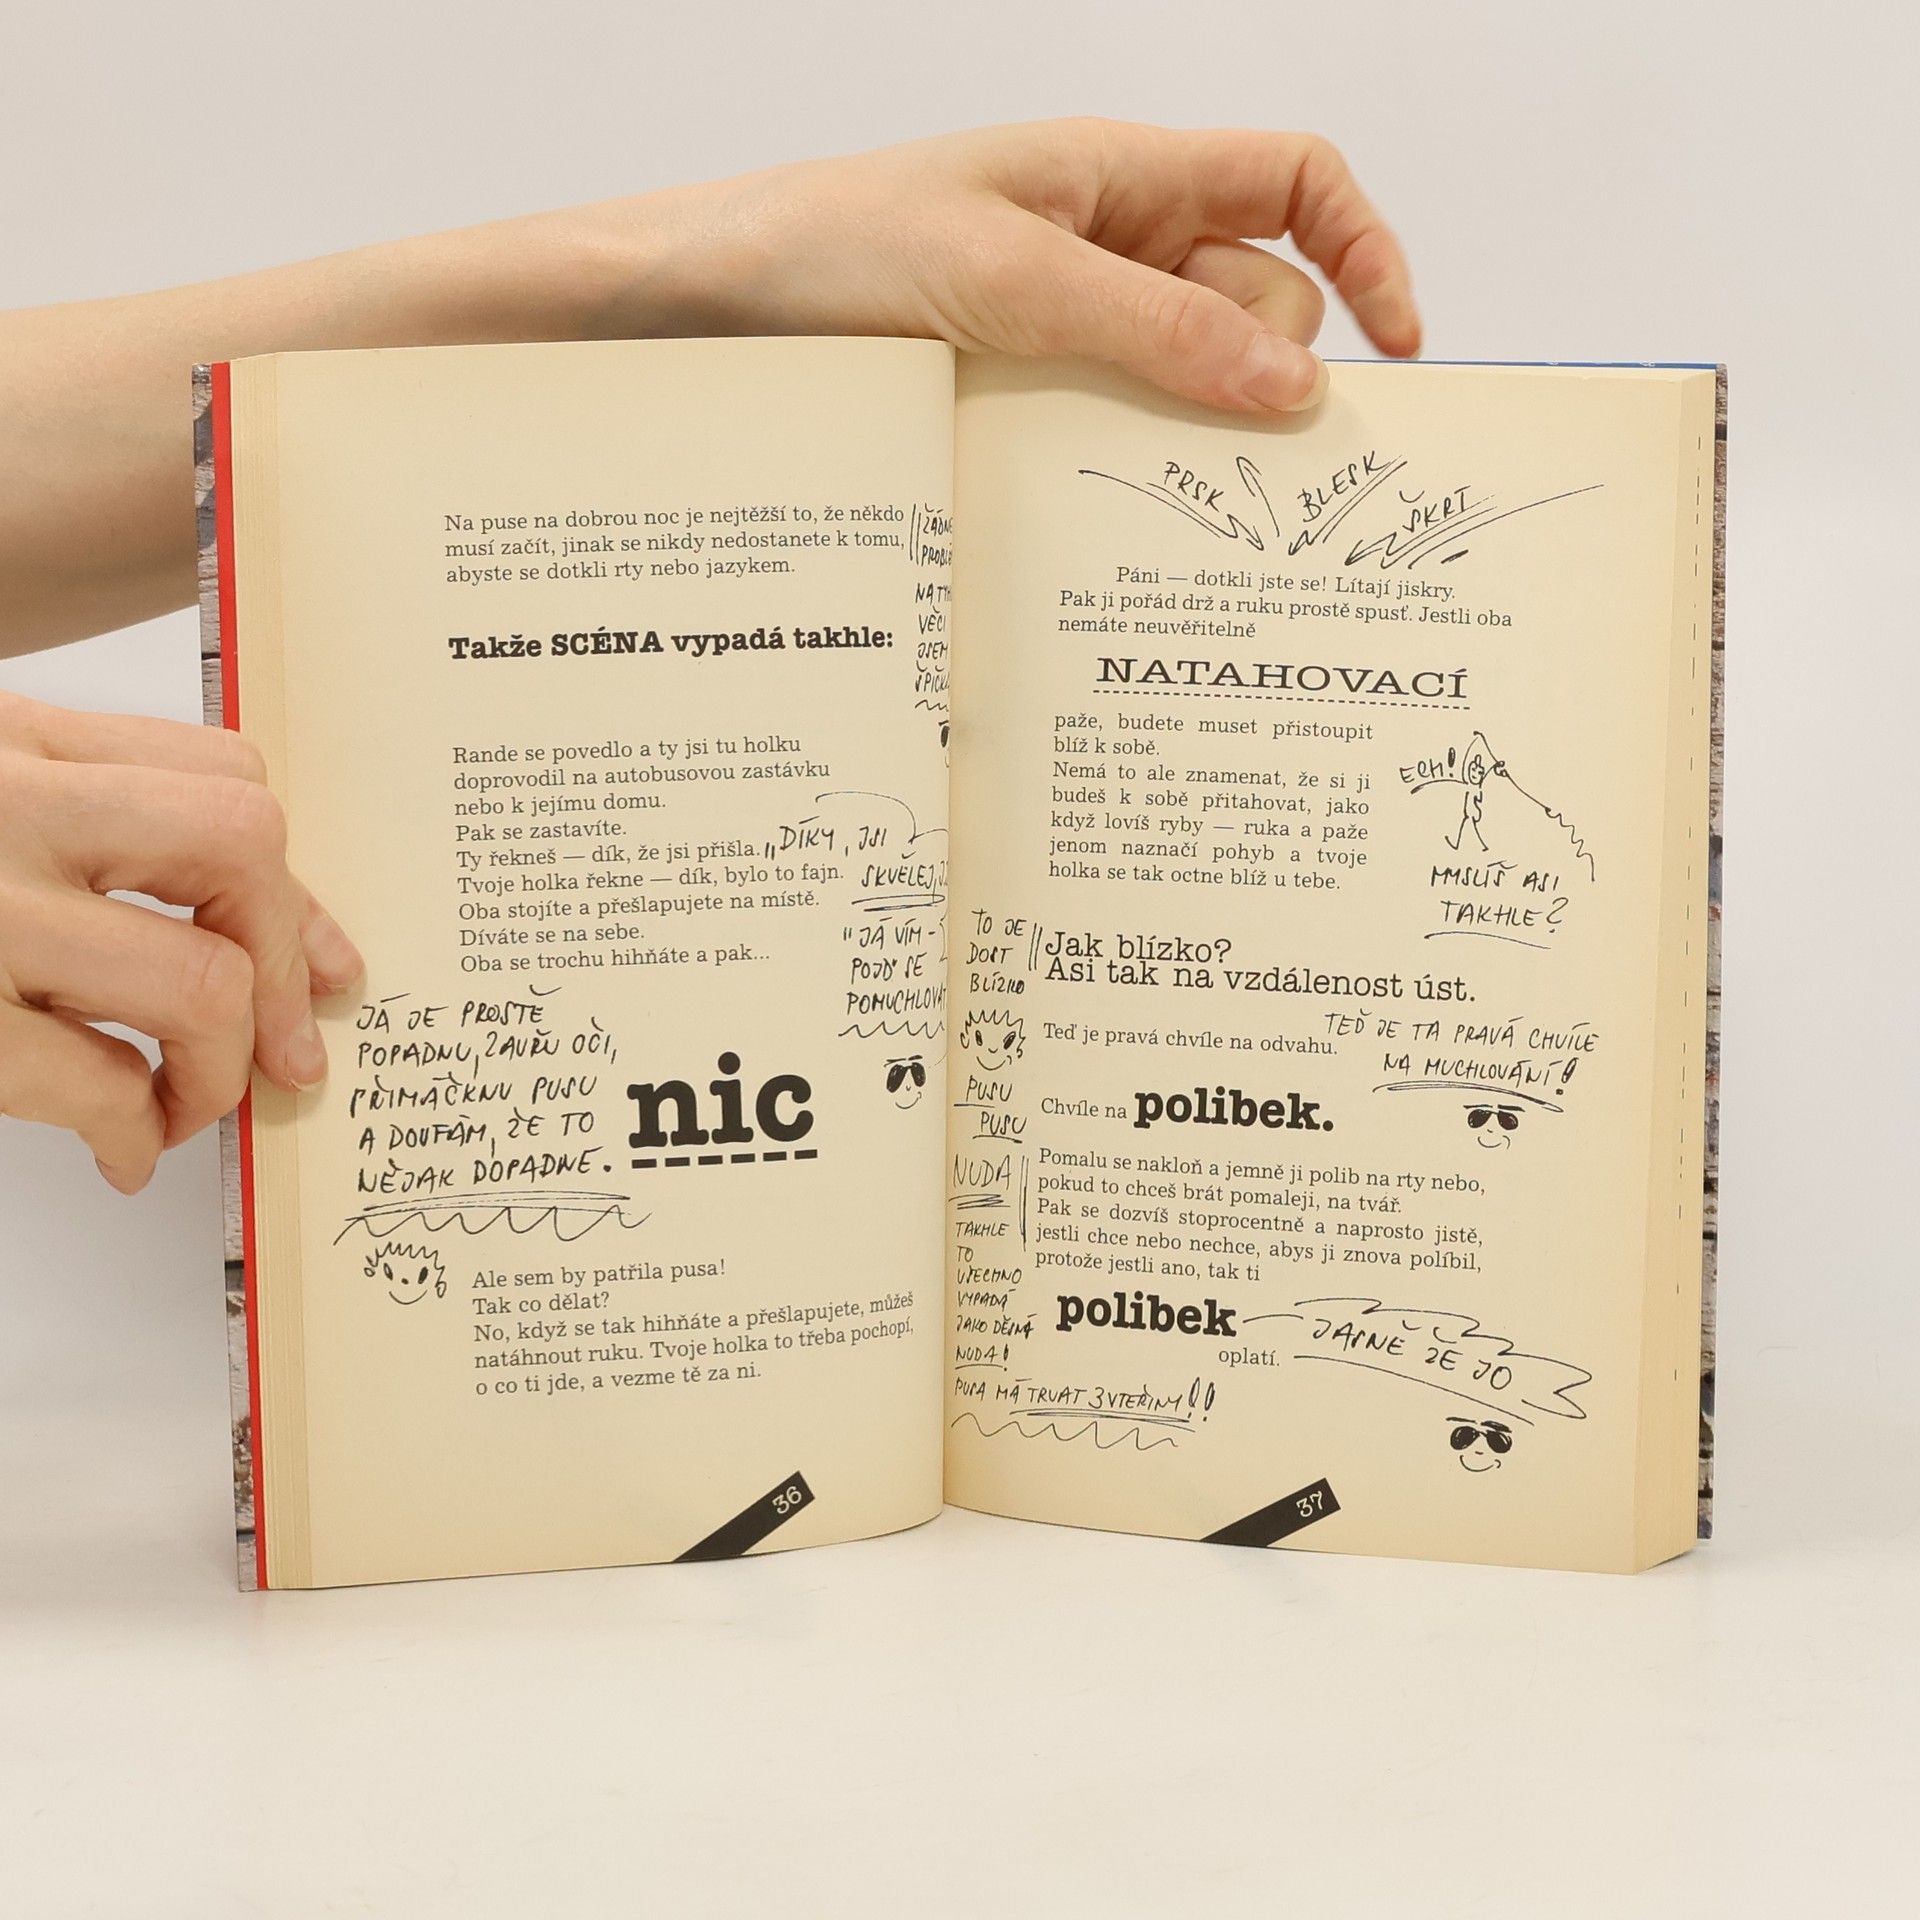 Na puse na dobrou noc je nejtěžší to, že někdo
musí začít, jinak se nikdy nedostanete k tomu,
abyste se dotkli rty nebo jazykem.
VĚCI
JSEM
Takže SCÉNA vypadá takhle:
Rande se povedlo a ty jsi tu holku
doprovodil na autobusovou zastávku
nebo k jejímu domu.
Pak se zastavíte.
Ty řekneš — dík, že jsi přišla.
Tvoje holka řekne — dík, bylo to fajn.
Oba stojíte a přešlapujete na místě.
Díváte se na sebe.
Oba se trochu hihňáte a pak...
"DÍKY, JSI
SKVĚLEJ,
"JÁ VÍM -
POJĎ SE
JÁ JE PROSTĚ
POPADNU, ZAVŘU OČI,
PŘIMÁČKNU PUSU
A DOUFÁM, ŽE TO
NĚJAK DOPADNE.
nic
Ale sem by patřila pusa!
Tak co dělat?
No, když se tak hihňáte a přešlapujete, můžeš
natáhnout ruku. Tvoje holka to třeba pochopí,
o co ti jde, a vezme tě za ni.
36
PRSK
BLESK
ŠKRT
Páni — dotkli jste se! Lítají jiskry.
Pak ji pořád drž a ruku prostě spusť. Jestli oba
nemáte neuvěřitelně
NATAHOVACÍ
paže, budete muset přistoupit
blíž k sobě.
Nemá to ale znamenat, že si ji
budeš k sobě přitahovat, jako
když lovíš ryby — ruka a paže
jenom naznačí pohyb a tvoje
holka se tak octne blíž u tebe.
ECH!
MYSLÍŠ ASI
TAKHLE?
TO JE
DOST
BLÍZKO
Jak blízko?
Asi tak na vzdálenost úst.
Teď je pravá chvíle na odvahu.
TEĎ JE TA PRAVÁ CHVÍLE
NA MUCHLOVÁNÍ!
PUSU
PUSU
Chvíle na polibek.
Pomalu se nakloň a jemně ji polib na rty nebo,
pokud to chceš brát pomaleji, na tvář.
Pak se dozvíš stoprocentně a naprosto jistě,
jestli chce nebo nechce, abys ji znova políbil,
protože jestli ano, tak ti
polibek
oplatí.
JASNĚ ŽE JO
NUDA
TAKHLE
TO
VŠECHNO
VYPADÁ
JAKO DĚSNÁ
NUDA!
PUSA MÁ TRVAT 3 VTEŘINY!!
37